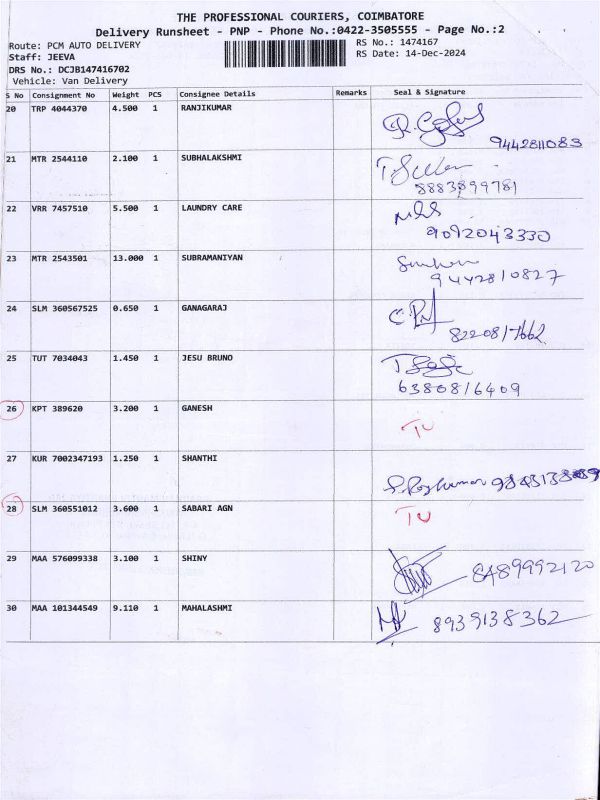 THE PROFESSIONAL COURIERS, COIMBATORE
Delivery Runsheet - PNP - Phone No.:0422-3505555 - Page No.:2
Route: PCM AUTO DELIVERY RS No.: 1474167
Staff: JEEVA RS Date: 14-Dec-2024
DRS No.: DCJB147416702
Vehicle: Van Delivery
S No Consignment No Weight PCS Consignee Details Remarks Seal & Signature
20 TRP 4044370 4.500 1 RANJIKUMAR
9442811083
21 MTR 2544110 2.100 1 SUBHALAKSHMI
8883899781
22 VRR 7457510 5.500 1 LAUNDRY CARE
9092043330
23 MTR 2543501 13.000 1 SUBRAMANIYAN
9442810827
24 SLM 360567525 0.650 1 GANAGARAJ
8220817662
25 TUT 7034043 1.450 1 JESU BRUNO
6380816409
26 KPT 389620 3.200 1 GANESH
TU
27 KUR 7002347193 1.250 1 SHANTHI
28 SLM 360551012 3.600 1 SABARI AGN TU
29 MAA 576099338 3.100 1 SHINY
8489992120
30 MAA 101344549 9.110 1 MAHALASHMI
8939138362